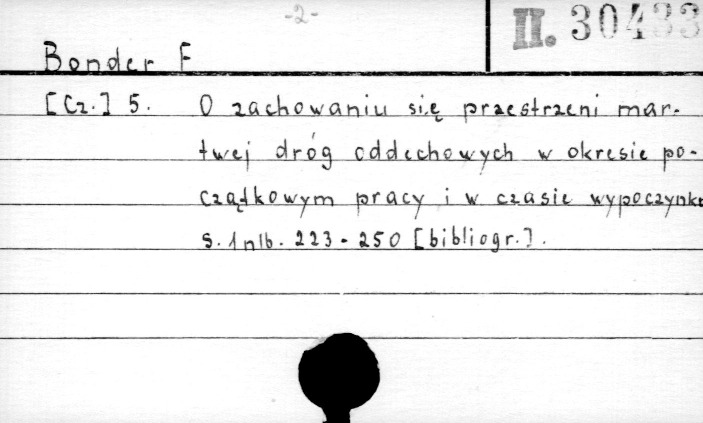 -2-
II. 30433
Bonder F
[Cz.] 5. O zachowaniu się przestrzeni mar-
twej dróg oddechowych w okresie po-
czątkowym pracy i w czasie wypoczynku
S. 1 nlb. 223-250 [bibliogr.].